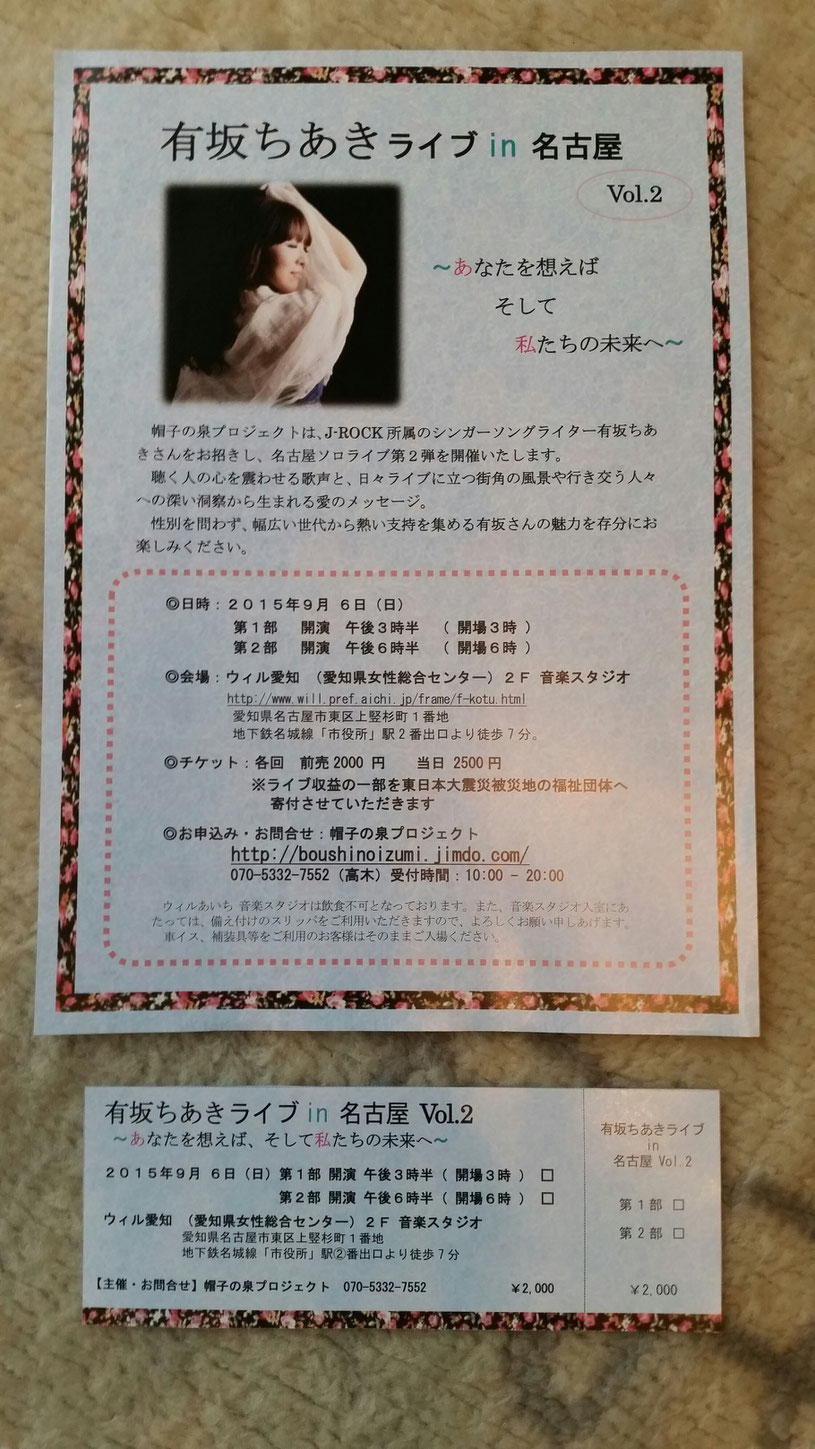 有坂ちあきライブ in 名古屋
Vol.2
～あなたを想えば
そして
私たちの未来へ～
帽子の泉プロジェクトは、J-ROCK 所属のシンガーソングライター有坂ちあ
きさんをお招きし、名古屋ソロライブ第２弾を開催いたします。
聴く人の心を震わせる歌声と、日々ライブに立つ街角の風景や行き交う人々
への深い洞察から生まれる愛のメッセージ。
性別を問わず、幅広い世代から熱い支持を集める有坂さんの魅力を存分にお
楽しみください。
◎日時：２０１５年９月 ６日（日）
第１部 開演 午後３時半 （ 開場３時 ）
第２部 開演 午後６時半 （ 開場６時 ）
◎会場：ウィル愛知 （愛知県女性総合センター）２Ｆ 音楽スタジオ
http://www.will.pref.aichi.jp/frame/f-kotu.html
愛知県名古屋市東区上竪杉町１番地
地下鉄名城線「市役所」駅２番出口より徒歩７分。
◎チケット：各回 前売2000 円 当日 2500円
※ライブ収益の一部を東日本大震災被災地の福祉団体へ
寄付させていただきます
◎お申込み・お問合せ：帽子の泉プロジェクト
http://boushinoizumi.jimdo.com/
070-5332-7552（高木）受付時間：10:00 - 20:00
ウィルあいち 音楽スタジオは飲食不可となっております。また、音楽スタジオ入室にあ
たっては、備え付けのスリッパをご利用いただきますので、よろしくお願い申しあげます。
車イス、補装具等をご利用のお客様はそのままご入場ください。
有坂ちあきライブ in 名古屋 Vol.2
～あなたを想えば、そして私たちの未来へ～
２０１５年９月 ６日（日）第１部 開演 午後３時半（ 開場３時 ） □
第２部 開演 午後６時半（ 開場６時 ） □
ウィル愛知 （愛知県女性総合センター）２Ｆ 音楽スタジオ
愛知県名古屋市東区上竪杉町１番地
地下鉄名城線「市役所」駅②番出口より徒歩７分
【主催・お問合せ】帽子の泉プロジェクト 070-5332-7552 ￥2,000
有坂ちあきライブ
in
名古屋 Vol.2
第１部 □
第２部 □
￥2,000